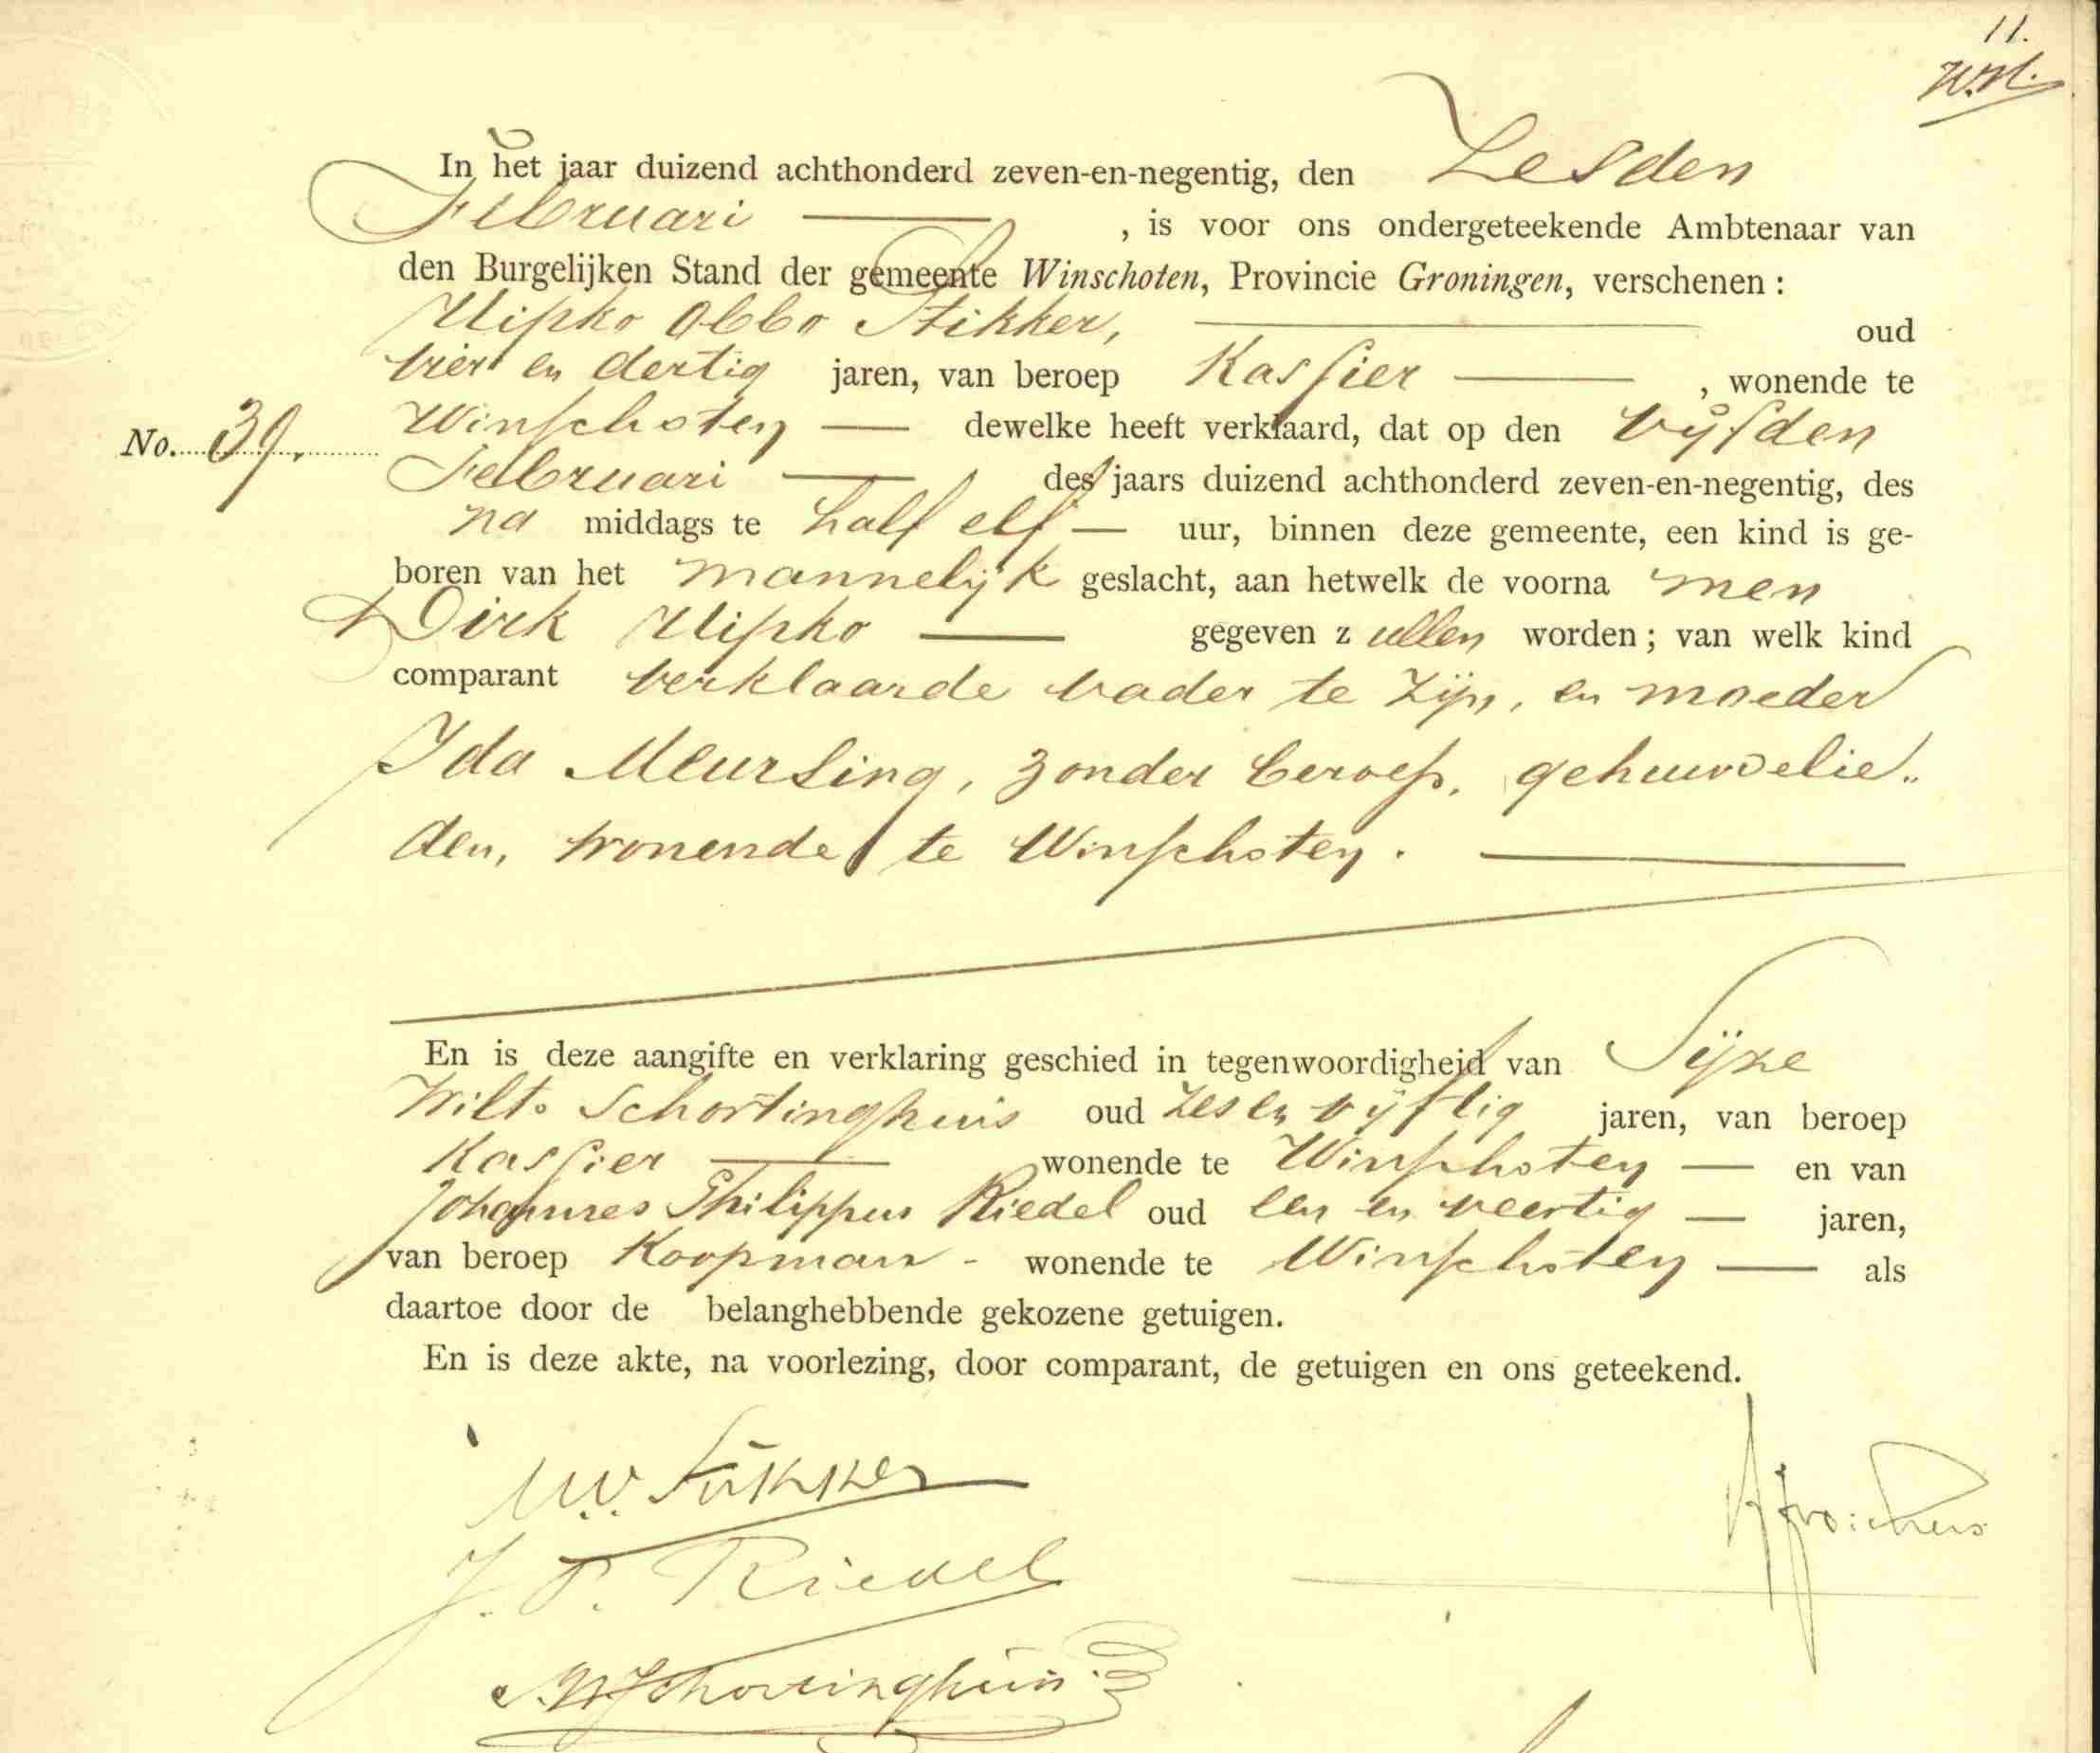 11.
W.M.
In het jaar duizend achthonderd zeven-en-negentig, den Zesden
Februari , is voor ons ondergeteekende Ambtenaar van
den Burgelijken Stand der gemeente Winschoten, Provincie Groningen, verschenen :
Uipko Obbo Stikker, oud
vier en dertig jaren, van beroep Kassier , wonende te
Winschoten dewelke heeft verklaard, dat op den vijfden
No. 39.
Februari des jaars duizend achthonderd zeven-en-negentig, des
na middags te half elf uur, binnen deze gemeente, een kind is ge-
boren van het mannelijk geslacht, aan hetwelk de voorna men
Dirk Uipko gegeven z ullen worden ; van welk kind
comparant verklaarde vader te zijn, en moeder
Ida Meursing, zonder beroep, gehuwdelie„
den, wonende te Winschoten.
En is deze aangifte en verklaring geschied in tegenwoordigheid van Sijze
Wilto Schortinghuis oud zes en vijftig jaren, van beroep
Kassier wonende te Winschoten en van
Johannes Philippus Riedel oud een en veertig jaren,
van beroep Koopman - wonende te Winschoten als
daartoe door de belanghebbende gekozene getuigen.
En is deze akte, na voorlezing, door comparant, de getuigen en ons geteekend.
Stikker
J. P. Riedel
Schortinghuis